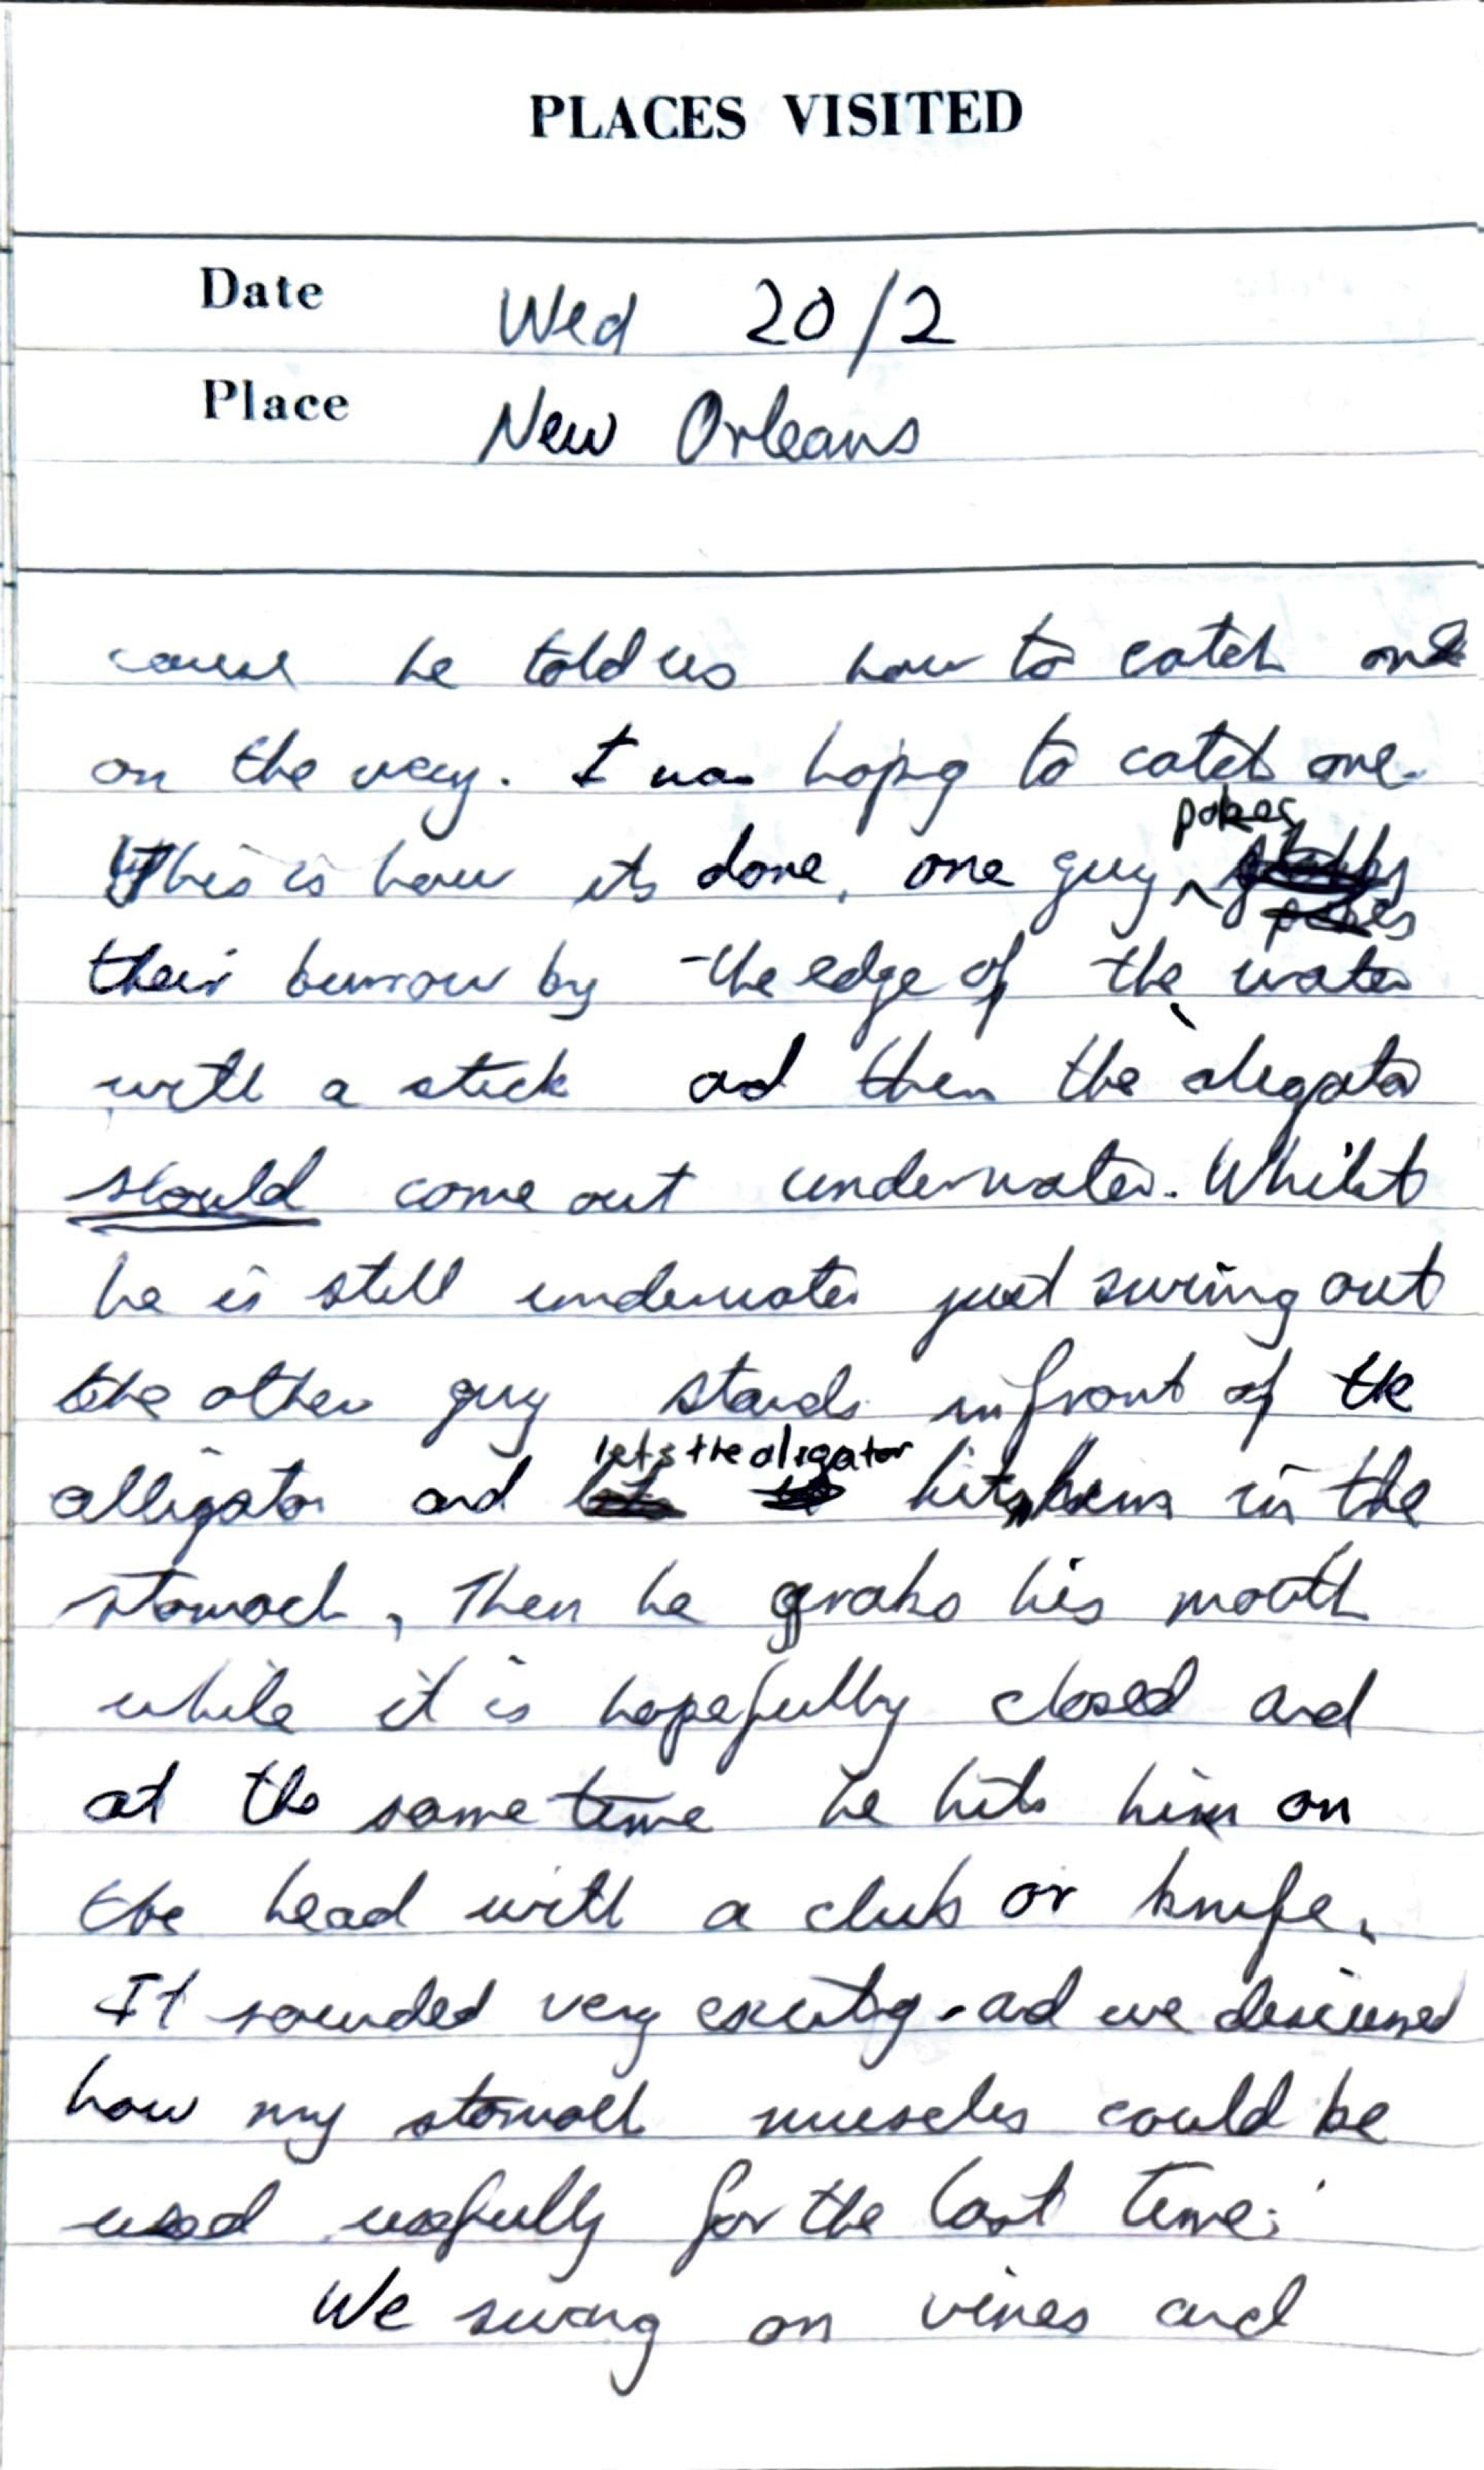 PLACES VISITED
Date Wed 20/2
Place New Orleans
cause he told us how to catch one
on the way. I was hoping to catch one.
This is how its done, one guy pokes
their burrow by the edge of the water
with a stick and then the aligator
should come out underwater. Whilst
he is still underwater just swimg out
the other guy stands infront of the
alligator and lets the aligator hit him in the
stomach, Then he grabs his mouth
while it is hopefully closed and
at the same time he hits him on
the head with a club or knife.
It sounded very exciting - and we discussed
how my stomach muscles could be
used usefully for the last time.
We swang on vines and